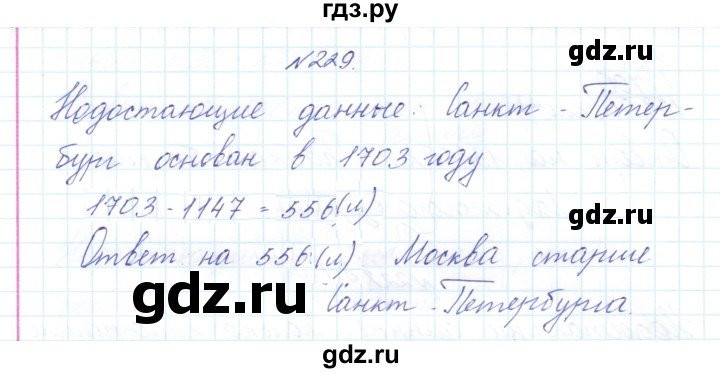 гдз.ру
gdz.ru
№229.
Недостающие данные: Санкт - Петер-
бург основан в 1703 году
gdz.ru
1703 - 1147 = 556 (л)
gdz.ru
Ответ на 556 (л) Москва старше
gdz.ru
Санкт - Петербурга.
gdz.ru
gdz.ru